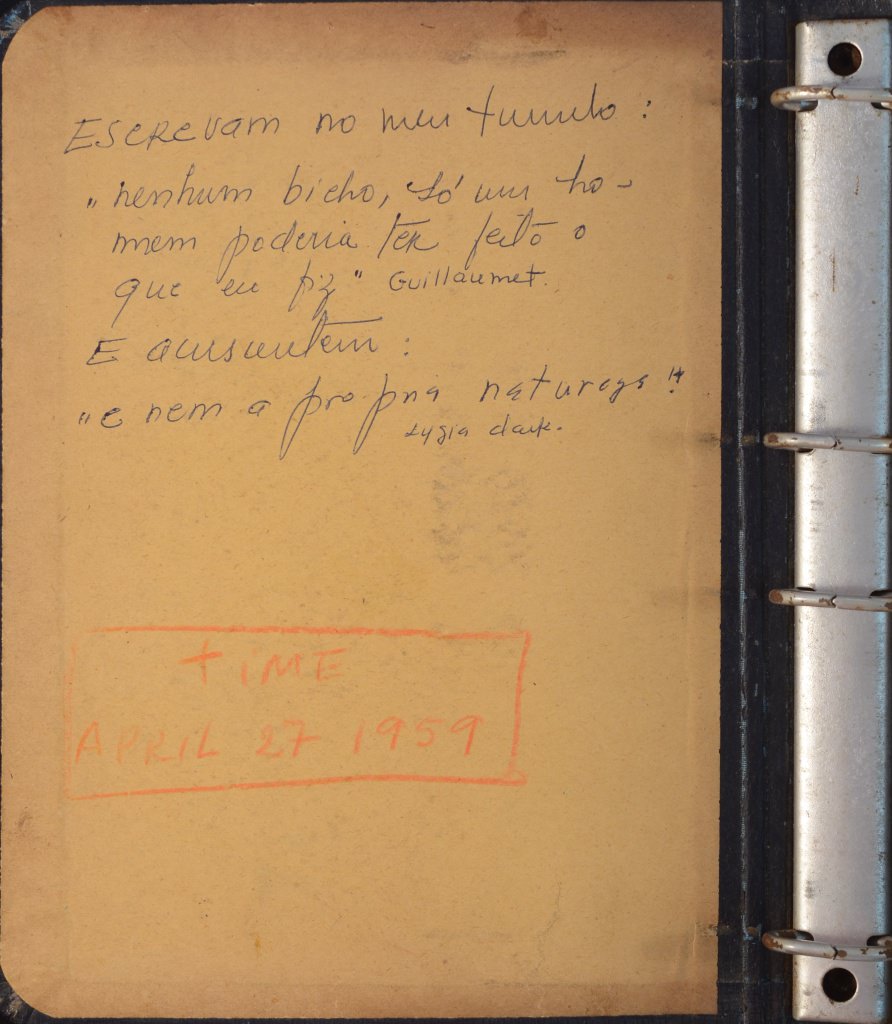 Escrevam no meu tumulo :
"nenhum bicho, só um ho-
mem poderia ter feito o
que eu fiz" Guillaumet.
E acrescentem :
"e nem a propria natureza"!
Lygia Clark.
TIME
APRIL 27 1959